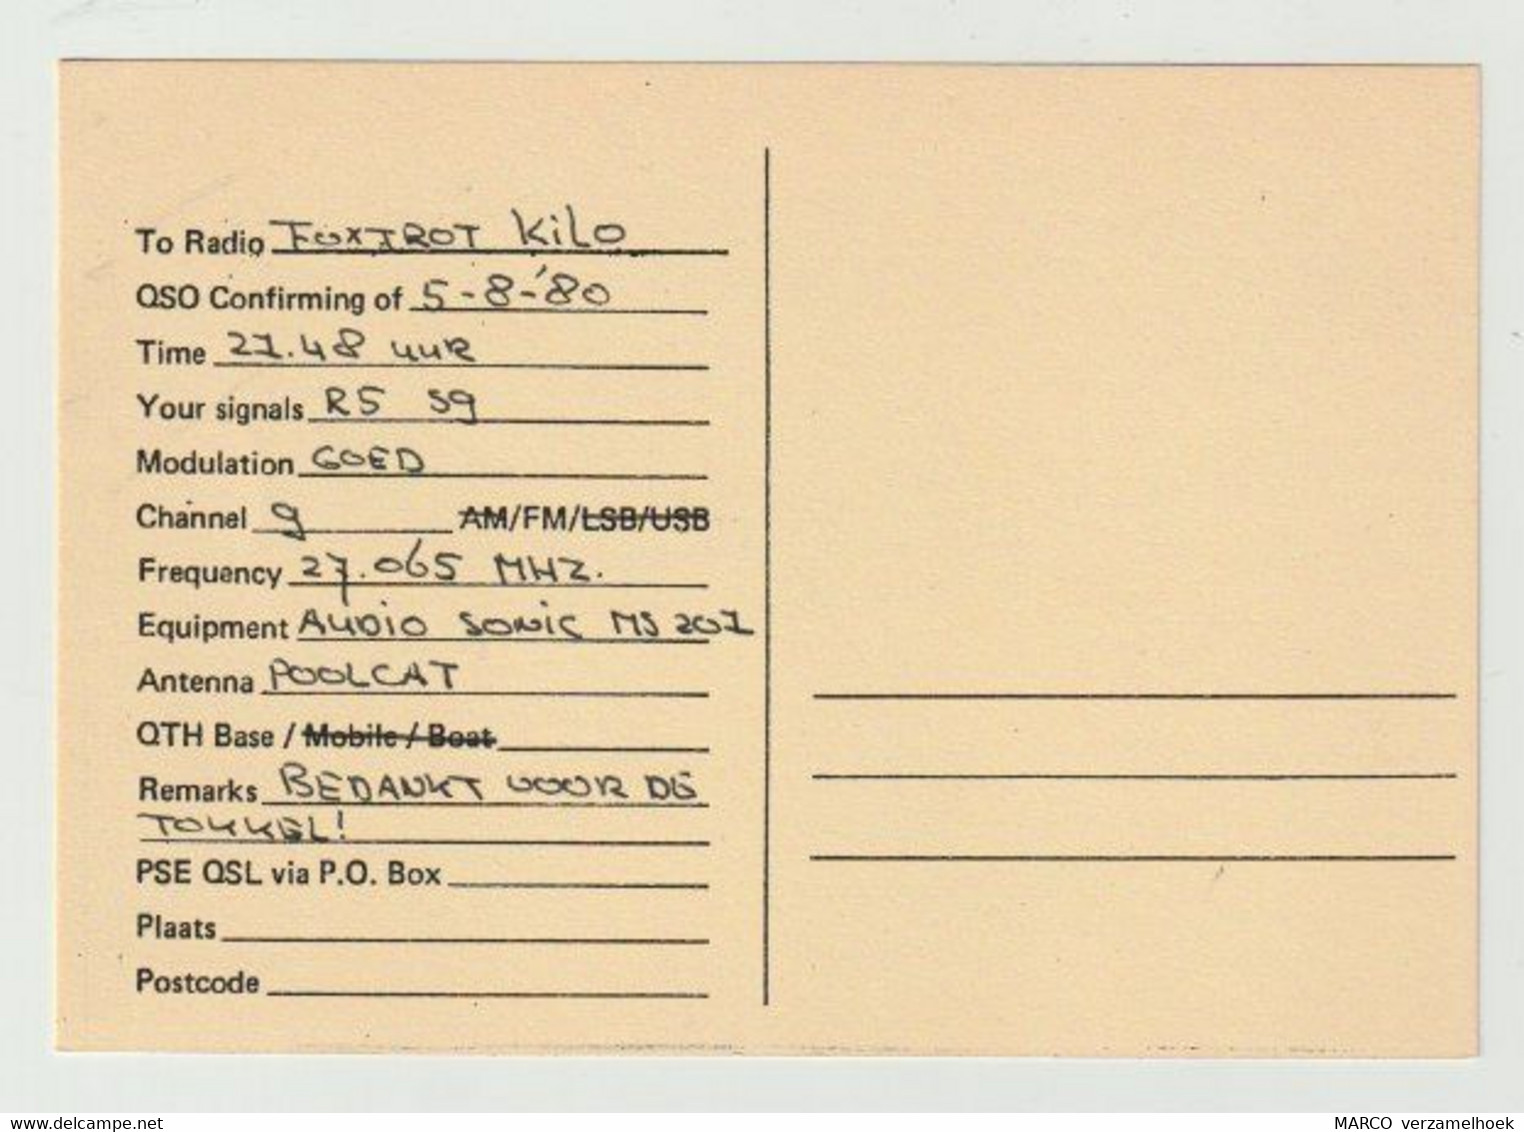 To Radio FOXTROT KiLO
QSO Confirming of 5-8-'80
Time 21.48 uur
Your signals R5 S9
Modulation GOED
Channel 9 AM/FM/LSB/USB
Frequency 27.065 MHZ.
Equipment AUDiO SONiC MS 201
Antenna POOLCAT
QTH Base / Mobile / Boat
Remarks BEDANKT VOOR DE
TOKKEL!
PSE QSL via P.O. Box
Plaats
Postcode
MARCO verzamelhoek